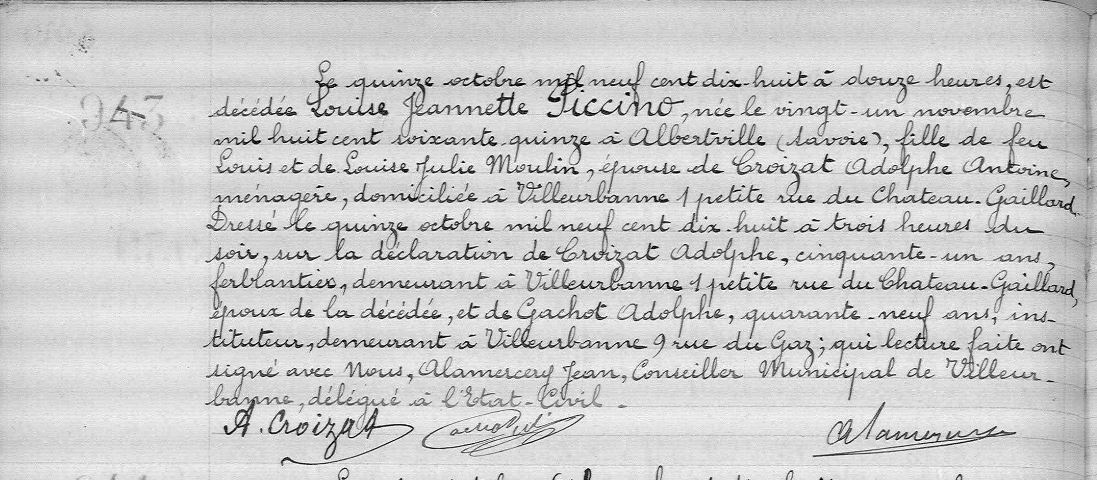 943
Le quinze octobre mil neuf cent dix-huit à douze heures, est
décédée Louise Jeannette Piccino, née le vingt-un novembre
mil huit cent soixante quinze à Albertville (Savoie), fille de feu
Louis et de Louise Julie Moulin, épouse de Croizat Adolphe Antoine,
ménagère, domiciliée à Villeurbanne 1 petite rue du Chateau-Gaillard.
Dressé le quinze octobre mil neuf cent dix-huit à trois heures du
soir, sur la déclaration de Croizat Adolphe, cinquante-un ans,
ferblantier, demeurant à Villeurbanne 1 petite rue du Chateau-Gaillard,
époux de la décédée, et de Gachot Adolphe, quarante-neuf ans, ins-
tituteur, demeurant à Villeurbanne 9 rue du Gaz; qui lecture faite ont
signé avec Nous, Alamercery Jean, Conseiller Municipal de Villeur-
banne, délégué à l'Etat-Civil.
A. Croizat Alamercery